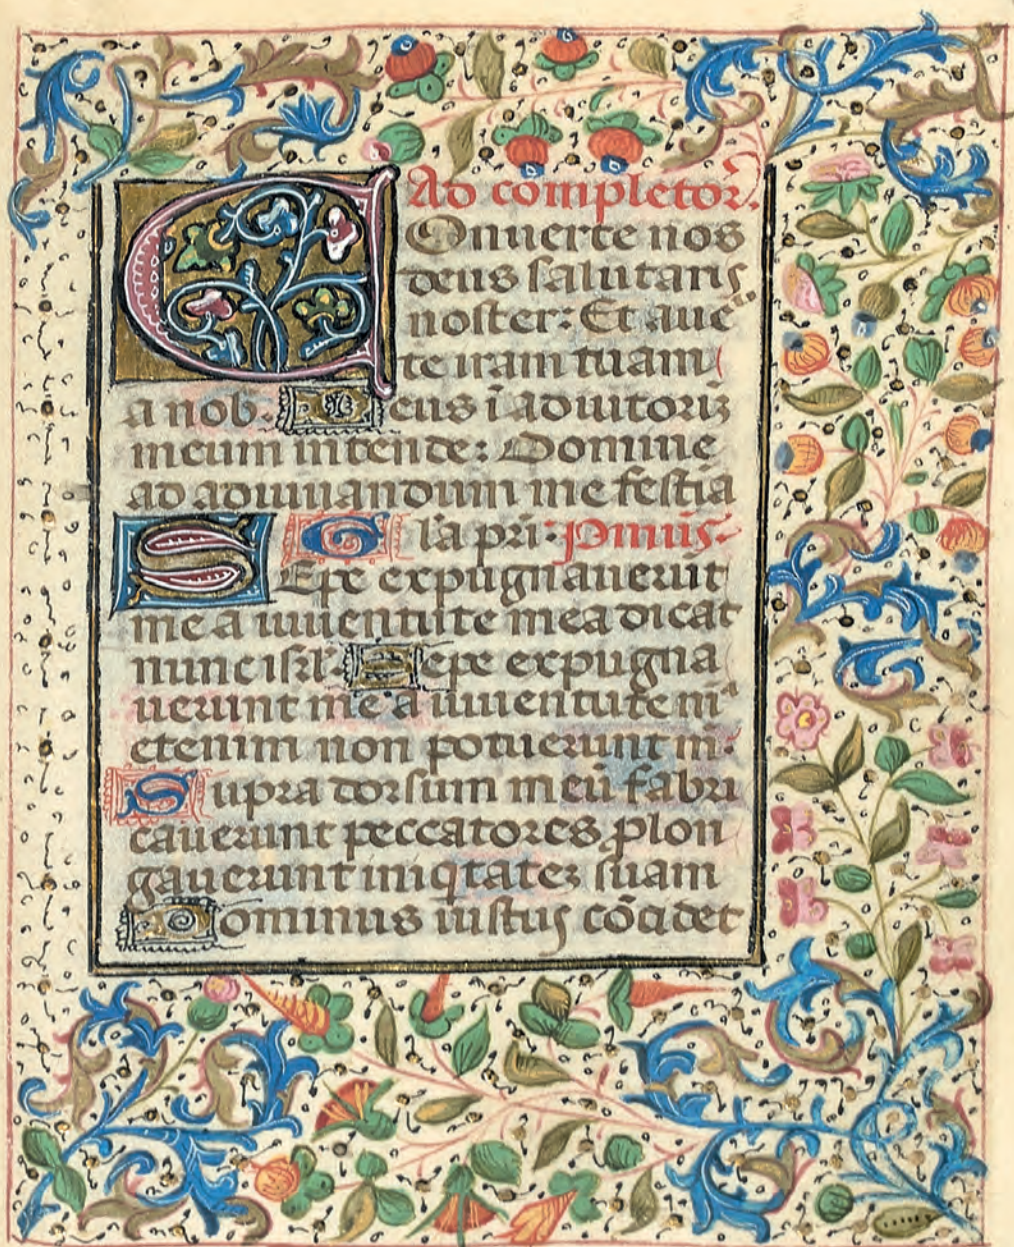 Ad completor̃.
COnuerte nos
deus salutaris
noster: Et aue
te iram tuam
a nob. Deus ĩ adiutoriũ
meum intende: Domine
ad adiuuandum me festia
Gl̃a pr̃i: Psalmus.
SEpe expugnauerũt
me a iuuentute mea dicat
nunc isrl̃. Sepe expugna
uerunt me a iuuentute mª
etenim non potuerunt m̃:
Supra dorsum meũ fabri
cauerunt peccatores ꝓlon
gauerunt iniqtatez suam
Dominus iustus cõcidet